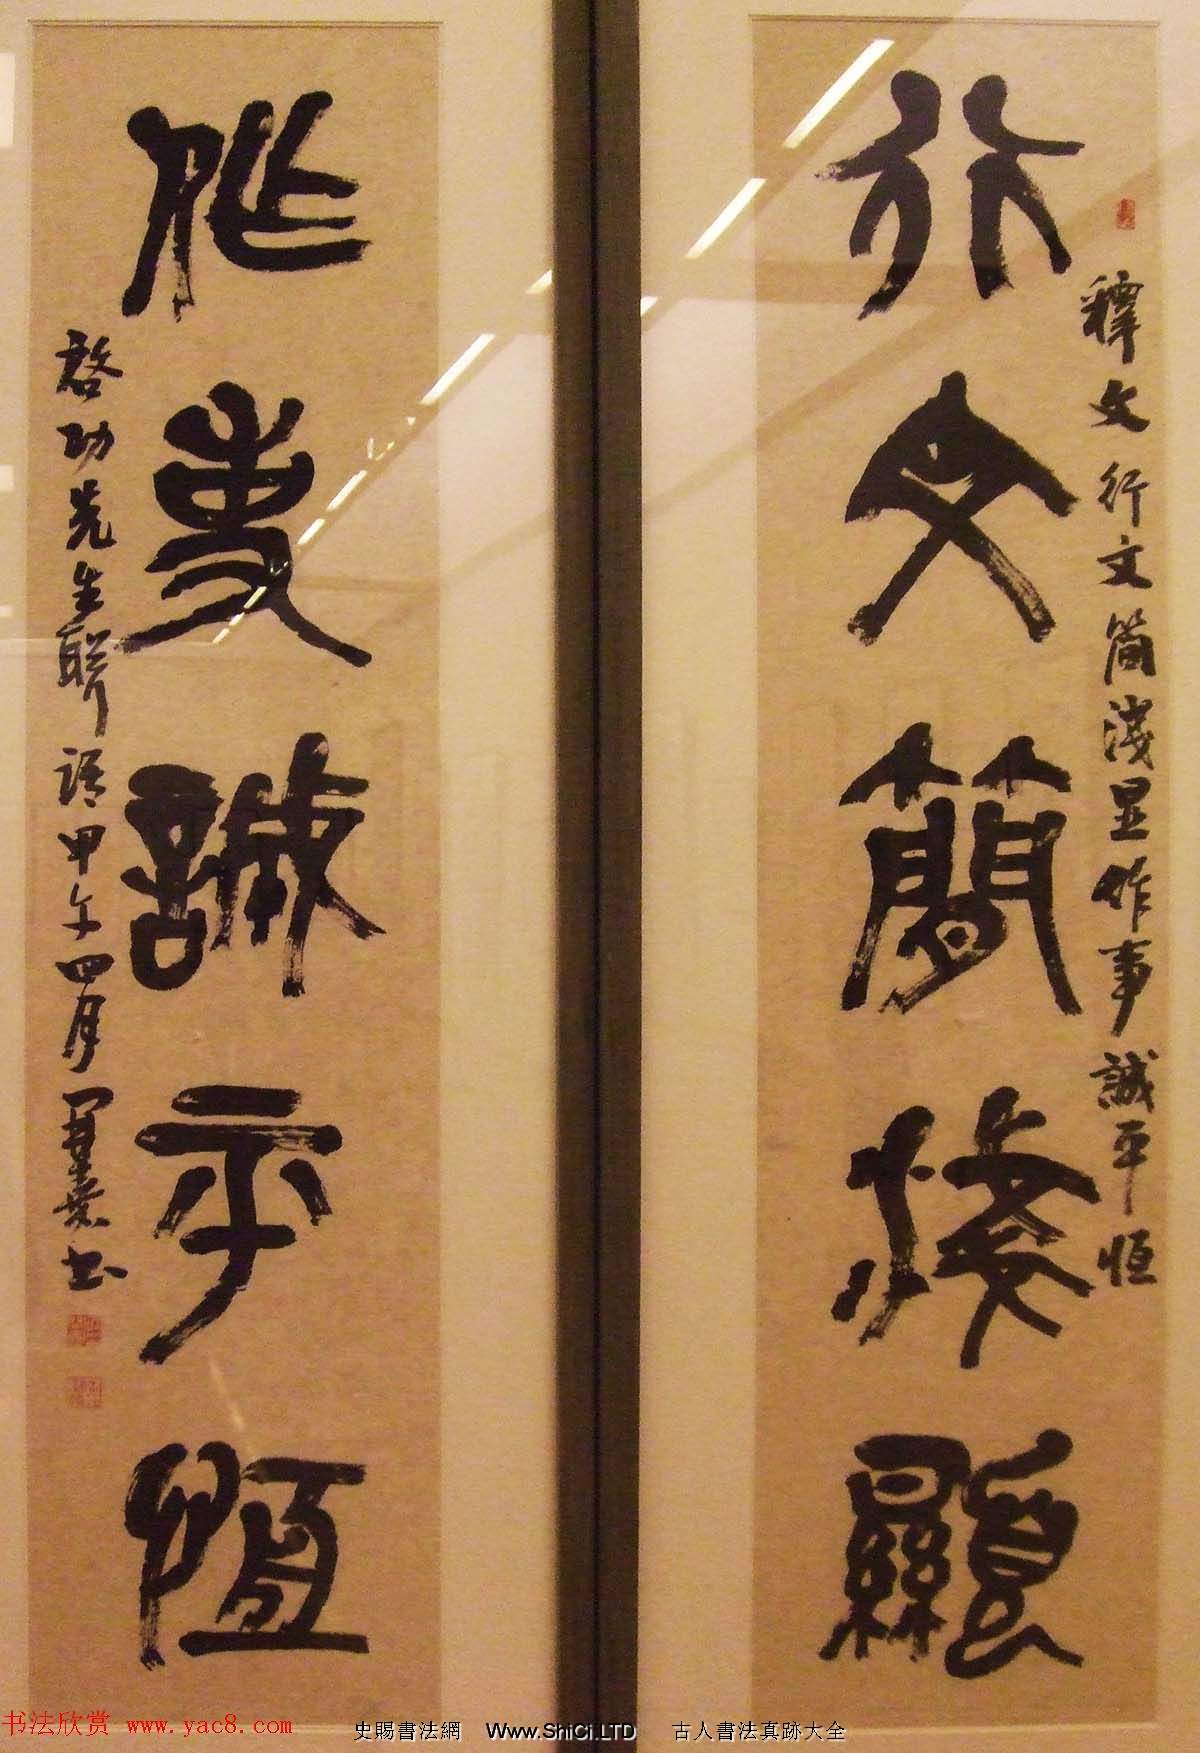 行文簡淺顯
釋文 行文简淺显作事誠平恒
作事誠平恒
启功先生联语甲午四月
书
书法欣赏 www.yac8.com
史賜書法網 Www.ShiCi.LTD 古人書法真跡大全